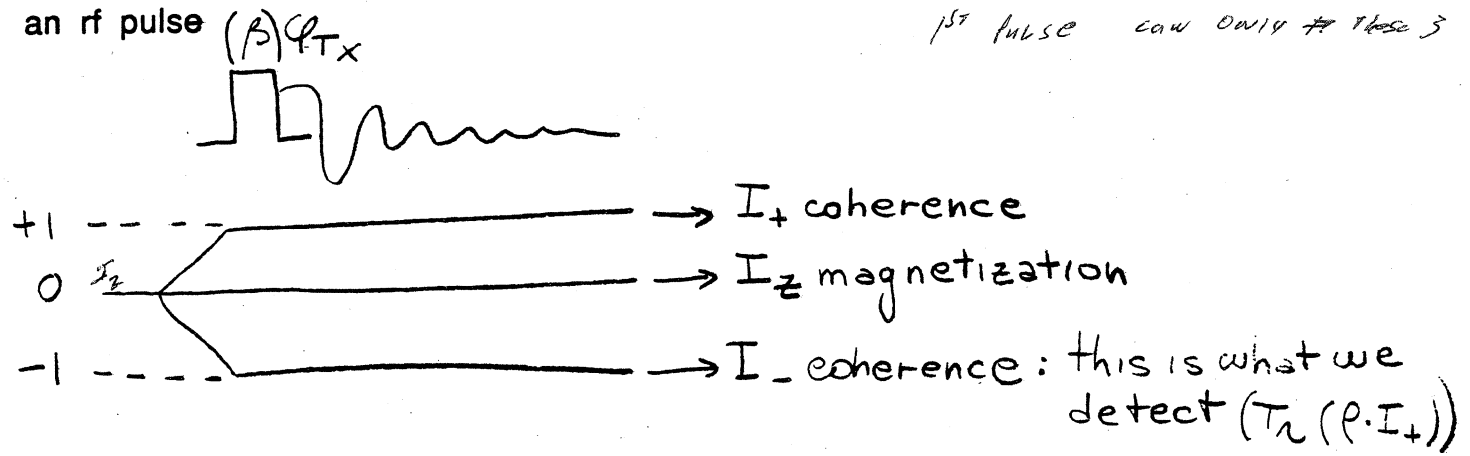 an rf pulse (β)φTx
1ST Pulse can only these 3
+1 I+ coherence
0 Iz Iz magnetization
-1 I- coherence: this is what we
detect (Tr (ρ·I+))